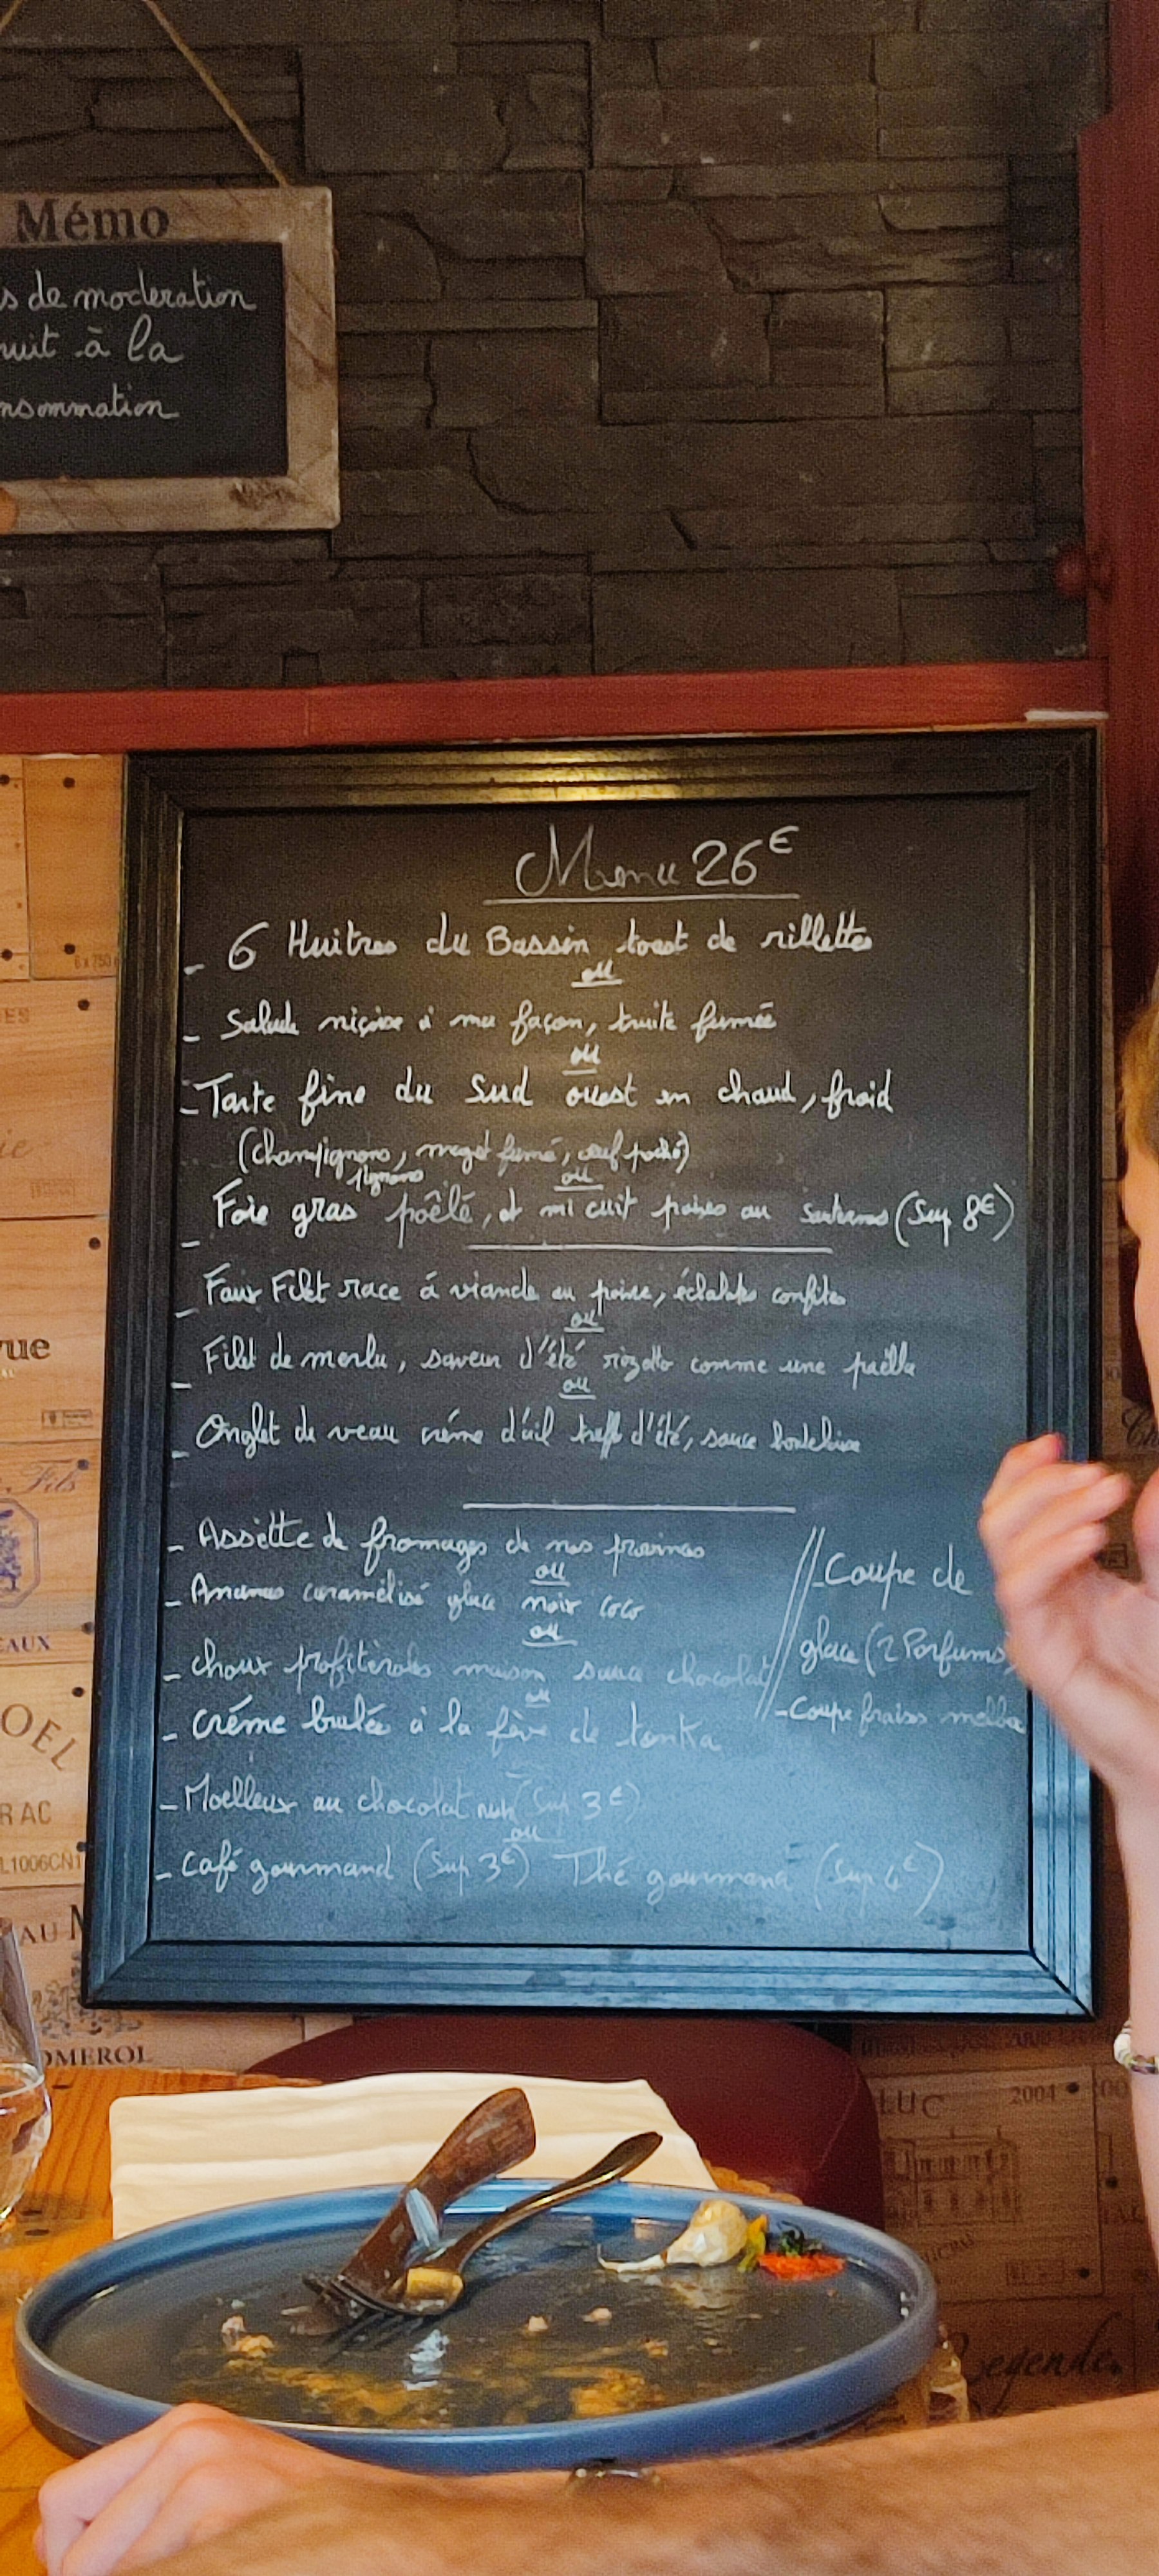 Mémo
s de moderation
nuit à la
nsommation
Menu 26€
- 6 Huitres du Bassin toast de rillettes
ou
- Salade niçoise à ma façon, truite fumée
ou
- Tarte fine du Sud ouest en chaud, froid
(champignons, magret fumé, œuf poché)
pignons
ou
- Foie gras poêlé, et mi cuit poires au sauternes (Sup 8€)
- Faux Filet race à viande au poivre, échalotes confites
ou
- Filet de merlu, saveur d'été rizotto comme une paëlla
ou
- Onglet de veau crème d'ail truffe d'été, sauce bordelaise
- Assiette de fromages de nos provinces
ou
- Ananas caramélisé glace noix coco
ou
- choux profiteroles maison sauce chocolat
ou
- Créme brulée à la fève de tonka
- Moelleux au chocolat (Sup 3€)
ou
- Café gourmand (Sup 3€) Thé gourmand (Sup 4€)
- Coupe de
glace (2 Parfums)
- Coupe fraises melba
6 x 750
vue
Fils
EAUX
OEL
RAC
L1006CN1
AU
OMEROL
LUC
2004
Legende